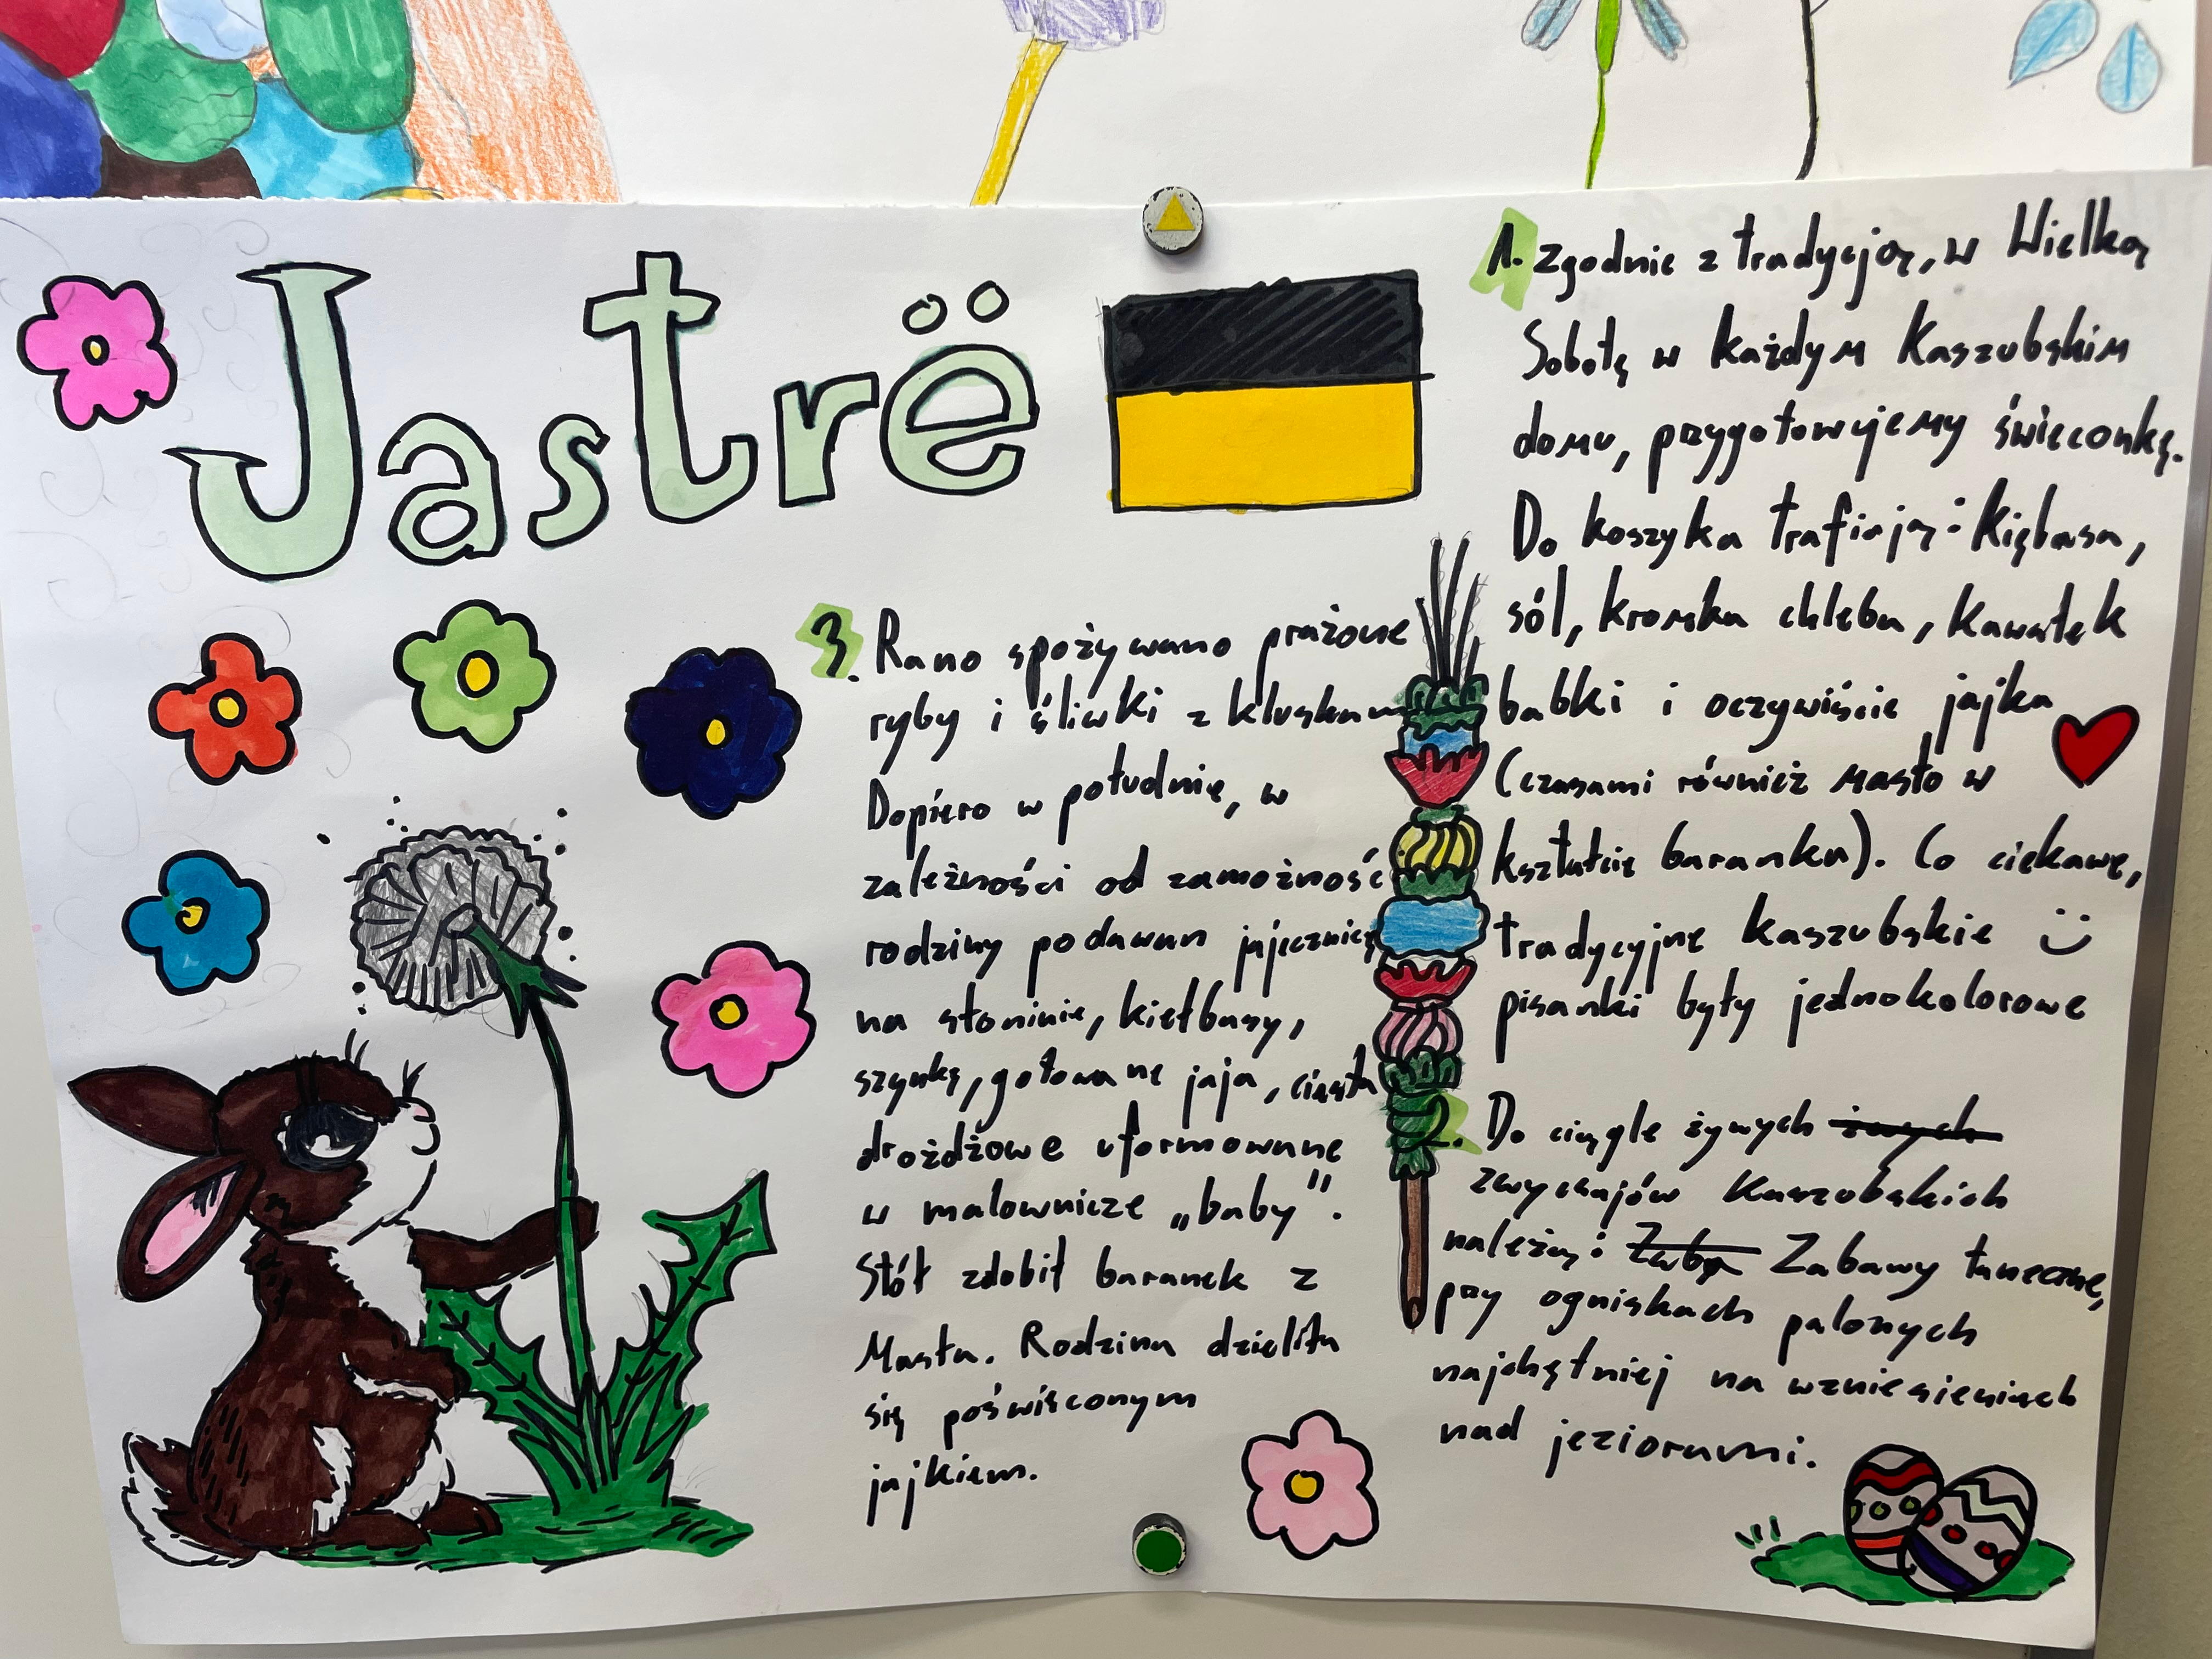 Jastrë
1. Zgodnie z tradycją, w Wielką
Sobotę w każdym Kaszubskim
domu, przygotowujemy święconkę.
Do koszyka trafiają: Kiębasa,
sól, kromka chleba, kawałek
babki i oczywiście jajka
(czasami również masło w
kształcie baranka). Co ciekawe,
tradycyjne kaszubskie
pisanki były jednokolorowe
2. Do ciągle żywych
zwyczajów Kaszubskich
należą: Zabawy taneczne,
przy ogniskach palonych
najchętniej na wzniesieniach
nad jeziorami.
3. Rano spożywano prażone
ryby i śliwki z kluskam
Dopiero w południe, w
zależności od zamożnośc
rodziny podawan jajecznicę
na słoninie, kiełbasy,
szynkę, gotowane jaja, ciasta
drożdżowe uformowane
w malownicze „baby".
Stół zdobił baranek z
Masła. Rodzina dzieliła
się poświęconym
jajkiem.